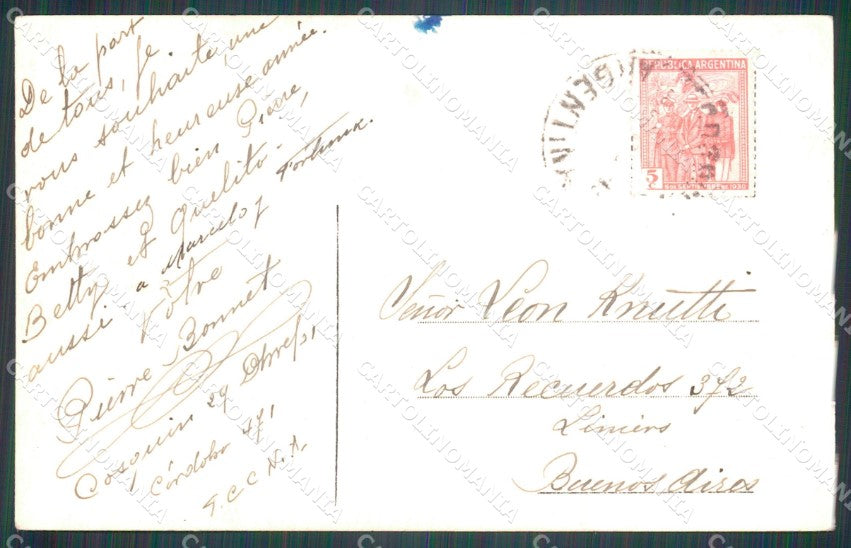 De la part
de tous, je
vous souhaite une
bonne et heureuse année.
Embrassez bien Pierre,
Betty et Quelito
aussi a Marcelo y Fortuna.
Vôtre
Pierre Bonnet
Cosquin 29
Córdoba
F.C.C.N.A.
REPUBLICA ARGENTINA
5
ARGENTINA
Señor Leon Knutti
Los Recuerdos 372
Liniers
Buenos Aires
CARTOLINOMANIA